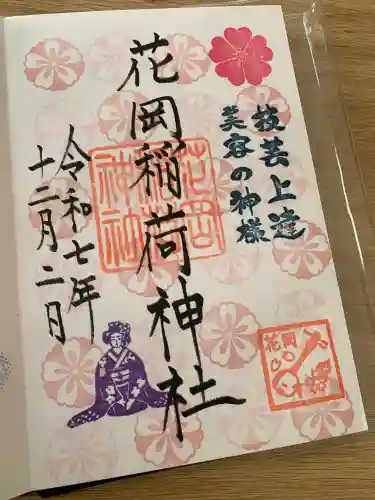 技芸上達
美容の神様
花岡稲荷神社
令和七年
十二月二日
花岡稲荷神社
花岡